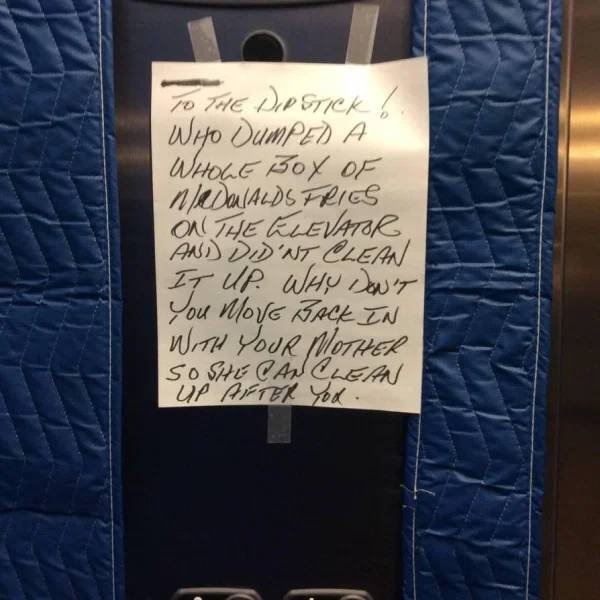 TO THE DIPSTICK!
WHO DUMPED A
WHOLE BOX OF
McDONALDS FRIES
ON THE ELEVATOR
AND DID'NT CLEAN
IT UP. WHY DON'T
YOU MOVE BACK IN
WITH YOUR MOTHER
SO SHE CAN CLEAN
UP AFTER YOU.